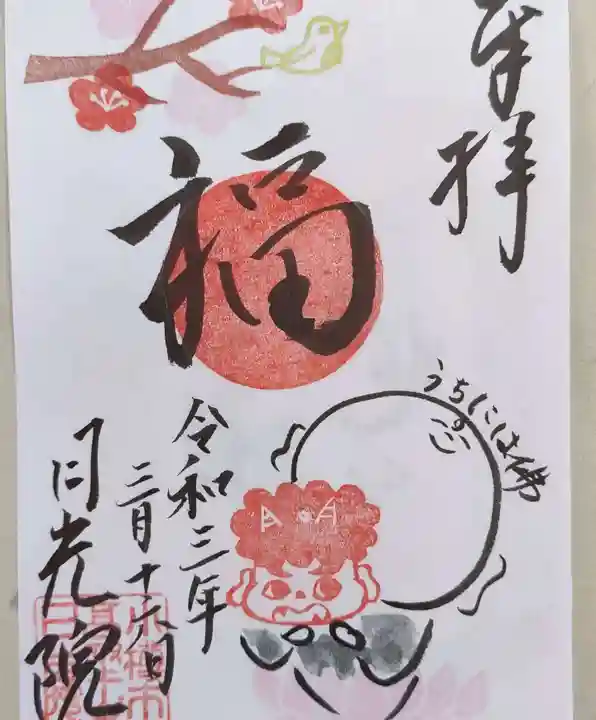 奉拝
福
うちには佛
令和三年
二月十六日
日光院